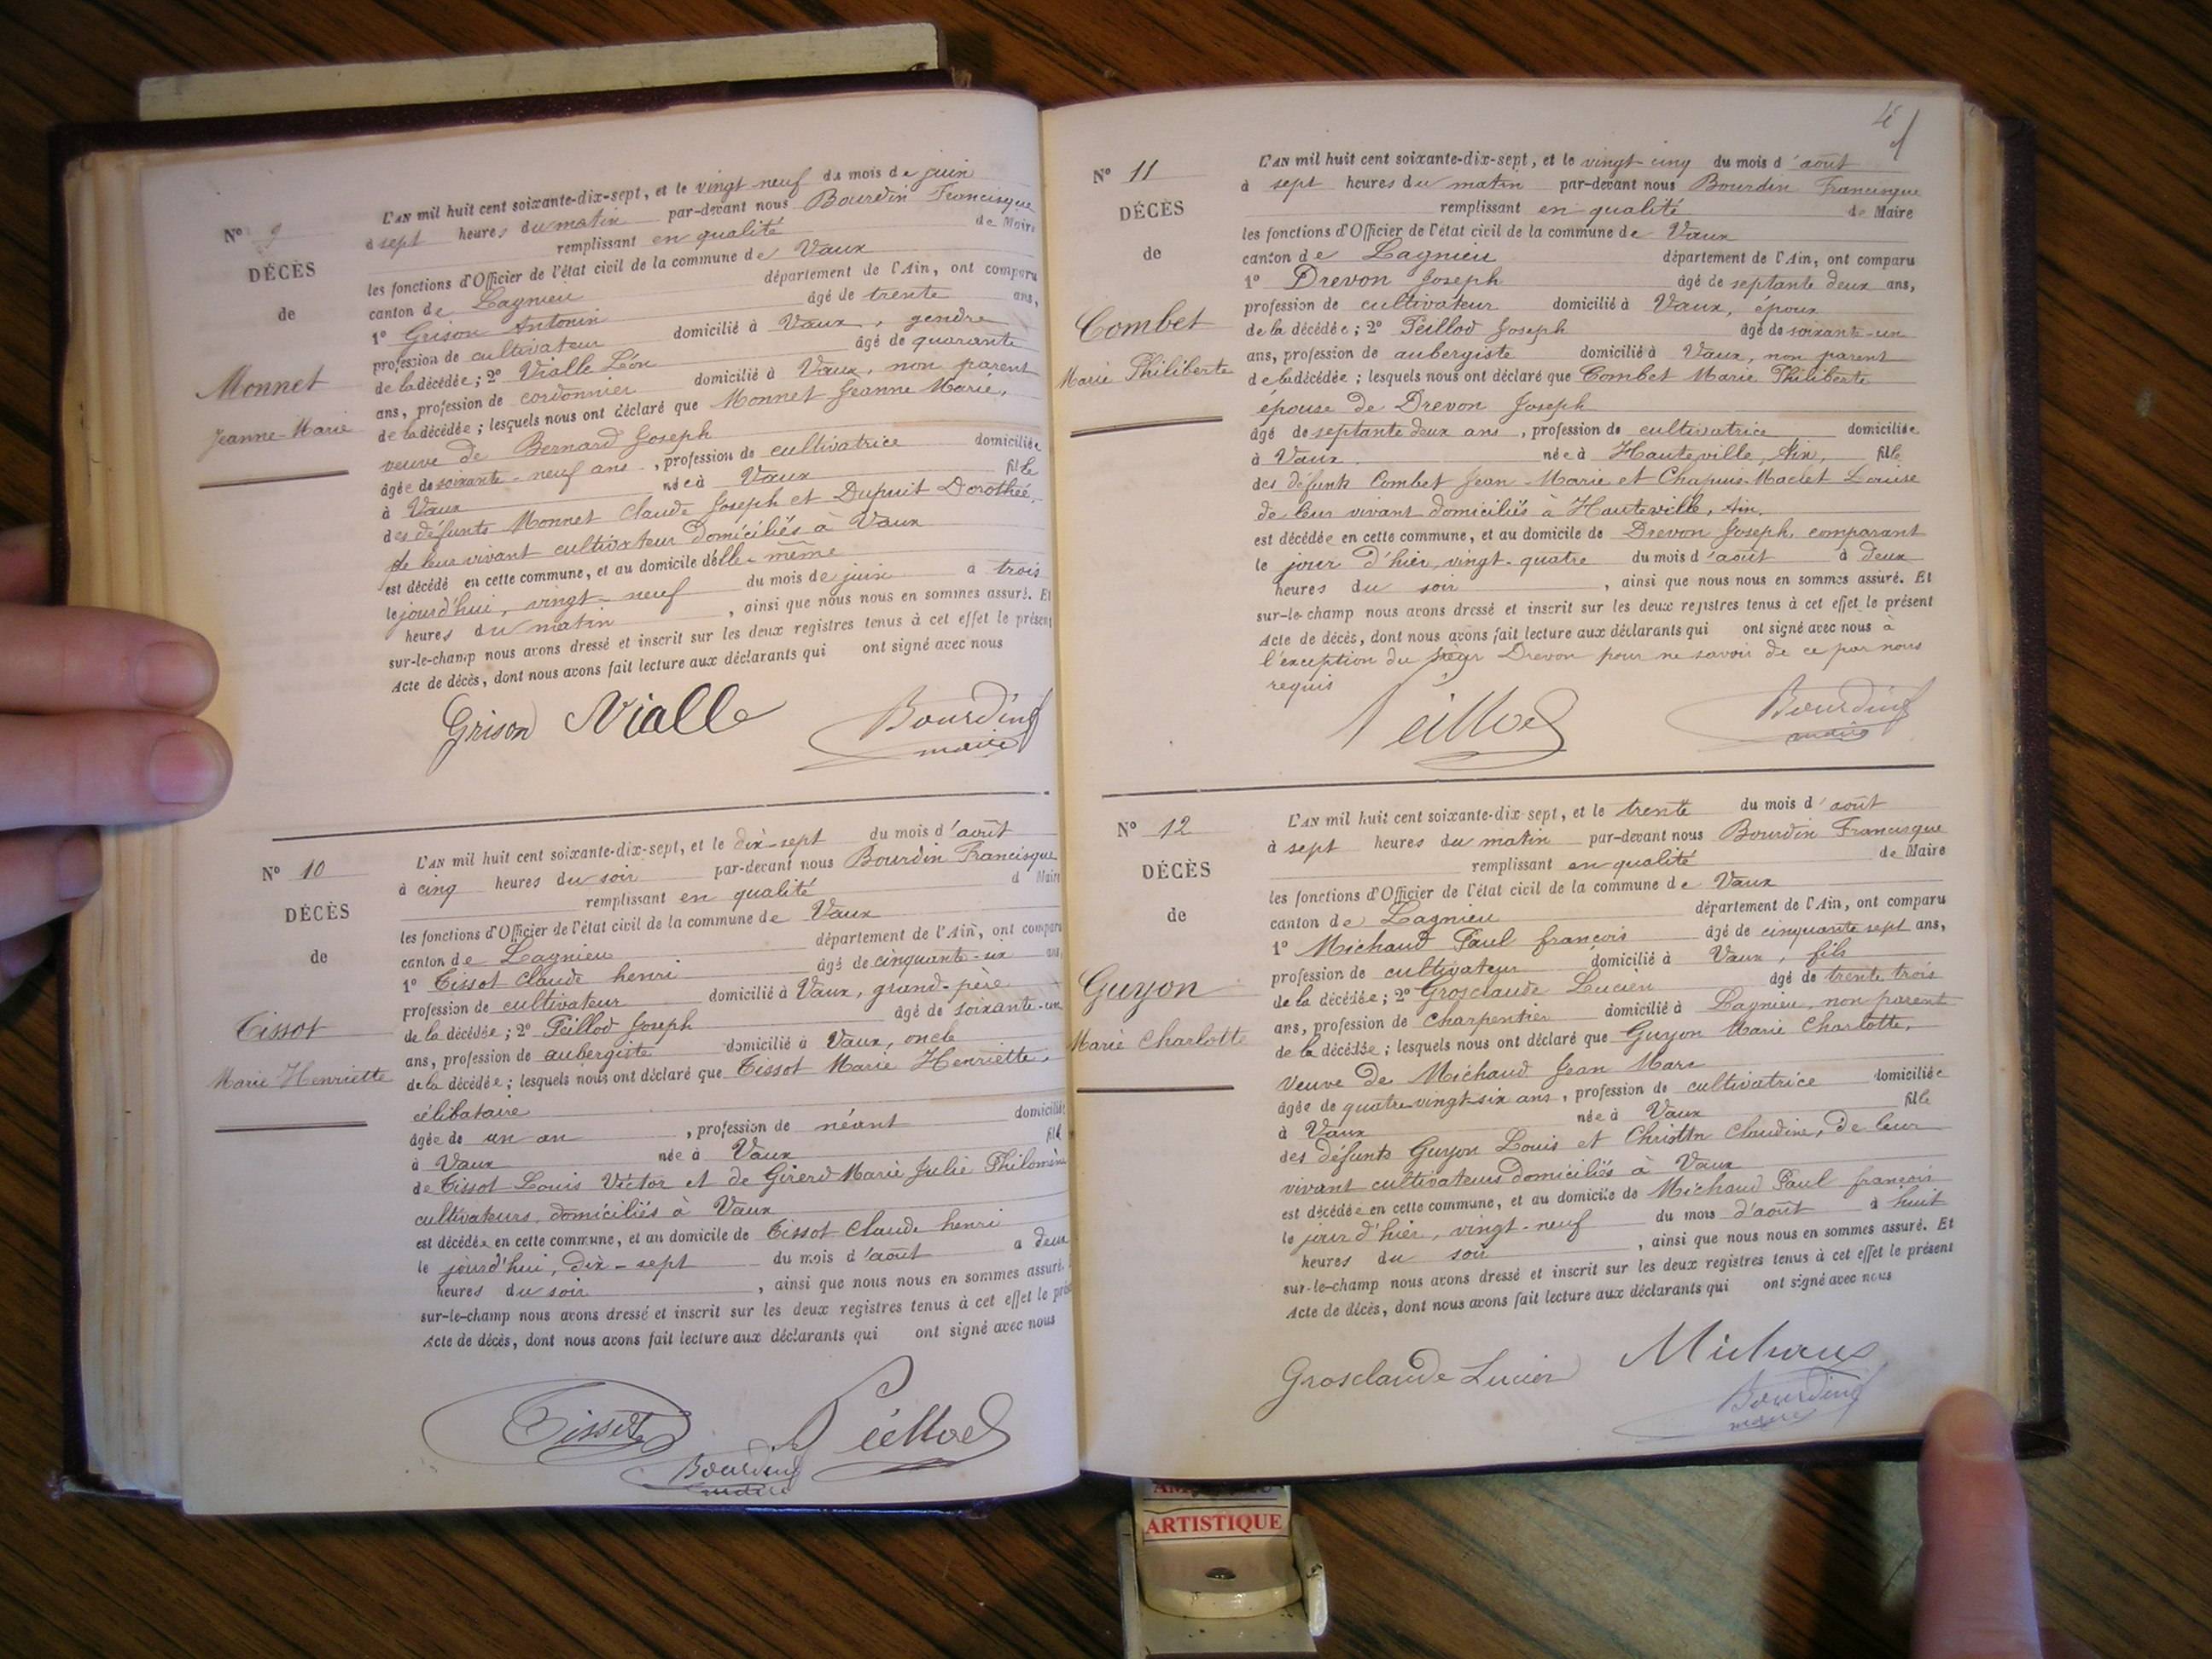 N° 9
DÉCÈS
de
Monnet
Jeanne-Marie
L'AN mil huit cent soixante-dix-sept, et le vingt neuf du mois de juin
à sept heures du matin par-devant nous Bourdin Francisque
remplissant en qualité de Maire
les fonctions d'Officier de l'état civil de la commune de Vaux
canton de Lagnieu département de l'Ain, ont comparu
1° Grison Antonin âgé de trente ans,
profession de cultivateur domicilié à Vaux, gendre
de la décédée; 2° Vialle Léon âgé de quarante
ans, profession de cordonnier domicilié à Vaux, non parent
de la décédée; lesquels nous ont déclaré que Monnet Jeanne Marie,
veuve de Bernard Joseph
âgée de soixante-neuf ans, profession de cultivatrice domiciliée
à Vaux née à Vaux fille
des défunts Monnet Claude Joseph et Dupuit Dorothée,
de leur vivant cultivateur domiciliés à Vaux
est décédé en cette commune, et au domicile d'elle-même
le jourd'hui, vingt-neuf du mois de juin à trois
heures du matin, ainsi que nous nous en sommes assuré. Et
sur-le-champ nous avons dressé et inscrit sur les deux registres tenus à cet effet le présent
Acte de décès, dont nous avons fait lecture aux déclarants qui ont signé avec nous
Grison Vialle Bourdin
maire
N° 10
DÉCÈS
de
Tissot
Marie Henriette
L'AN mil huit cent soixante-dix-sept, et le dix-sept du mois d'août
à cinq heures du soir par-devant nous Bourdin Francisque
remplissant en qualité d Maire
les fonctions d'Officier de l'état civil de la commune de Vaux
canton de Lagnieu département de l'Ain, ont comparu
1° Tissot Claude henri âgé de cinquante-six ans,
profession de cultivateur domicilié à Vaux, grand-père
de la décédée; 2° Peillod Joseph âgé de soixante-un
ans, profession de aubergiste domicilié à Vaux, oncle
de la décédée; lesquels nous ont déclaré que Tissot Marie Henriette,
célibataire
âgée de un an, profession de néant domiciliée
à Vaux née à Vaux fille
de Tissot Louis Victor et de Girerd Marie Julie Philomène
cultivateurs, domiciliés à Vaux
est décédée en cette commune, et au domicile de Tissot Claude henri
le jourd'hui, dix-sept du mois d'août à deux
heures du soir, ainsi que nous nous en sommes assuré.
sur-le-champ nous avons dressé et inscrit sur les deux registres tenus à cet effet le présent
Acte de décès, dont nous avons fait lecture aux déclarants qui ont signé avec nous
Tissot Peillod
Bourdin
maire
N° 11
DÉCÈS
de
Combet
Marie Philiberte
L'AN mil huit cent soixante-dix-sept, et le vingt cinq du mois d'août
à sept heures du matin par-devant nous Bourdin Francisque
remplissant en qualité de Maire
les fonctions d'Officier de l'état civil de la commune de Vaux
canton de Lagnieu département de l'Ain, ont comparu
1° Drevon Joseph âgé de septante deux ans,
profession de cultivateur domicilié à Vaux, époux
de la décédée; 2° Peillod Joseph âgé de soixante-un
ans, profession de aubergiste domicilié à Vaux, non parent
de la décédée; lesquels nous ont déclaré que Combet Marie Philiberte
épouse de Drevon Joseph
âgé de septante deux ans, profession de cultivatrice domiciliée
à Vaux née à Hauteville, Ain, fille
des défunts Combet Jean Marie et Chapuis-Maclet Louise
de leur vivant domiciliés à Hauteville, Ain.
est décédée en cette commune, et au domicile de Drevon Joseph, comparant
le jour d'hier, vingt-quatre du mois d'août à deux
heures du soir, ainsi que nous nous en sommes assuré. Et
sur-le-champ nous avons dressé et inscrit sur les deux registres tenus à cet effet le présent
Acte de décès, dont nous avons fait lecture aux déclarants qui ont signé avec nous à
l'exception du Drevon pour ne savoir de ce par nous
requis
Peillod Bourdin
maire
N° 12
DÉCÈS
de
Guyon
Marie Charlotte
L'AN mil huit cent soixante-dix-sept, et le trente du mois d'août
à sept heures du matin par-devant nous Bourdin Francisque
remplissant en qualité de Maire
les fonctions d'Officier de l'état civil de la commune de Vaux
canton de Lagnieu département de l'Ain, ont comparu
1° Michaud Paul françois âgé de cinquante sept ans,
profession de cultivateur domicilié à Vaux, fils
de la décédée; 2° Grosclaude Lucien âgé de trente trois
ans, profession de charpentier domicilié à Lagnieu, non parent
de la décédée; lesquels nous ont déclaré que Guyon Marie Charlotte,
veuve de Michaud Jean Marc
âgée de quatre vingt-six ans, profession de cultivatrice domiciliée
à Vaux née à Vaux fille
des défunts Guyon Louis et Christin Claudine, de leur
vivant cultivateurs domiciliés à Vaux
est décédée en cette commune, et au domicile de Michaud Paul françois
le jour d'hier, vingt-neuf du mois d'août à huit
heures du soir, ainsi que nous nous en sommes assuré. Et
sur-le-champ nous avons dressé et inscrit sur les deux registres tenus à cet effet le présent
Acte de décès, dont nous avons fait lecture aux déclarants qui ont signé avec nous
Grosclaude Lucien Michaud
Bourdin
maire
ARTISTIQUE